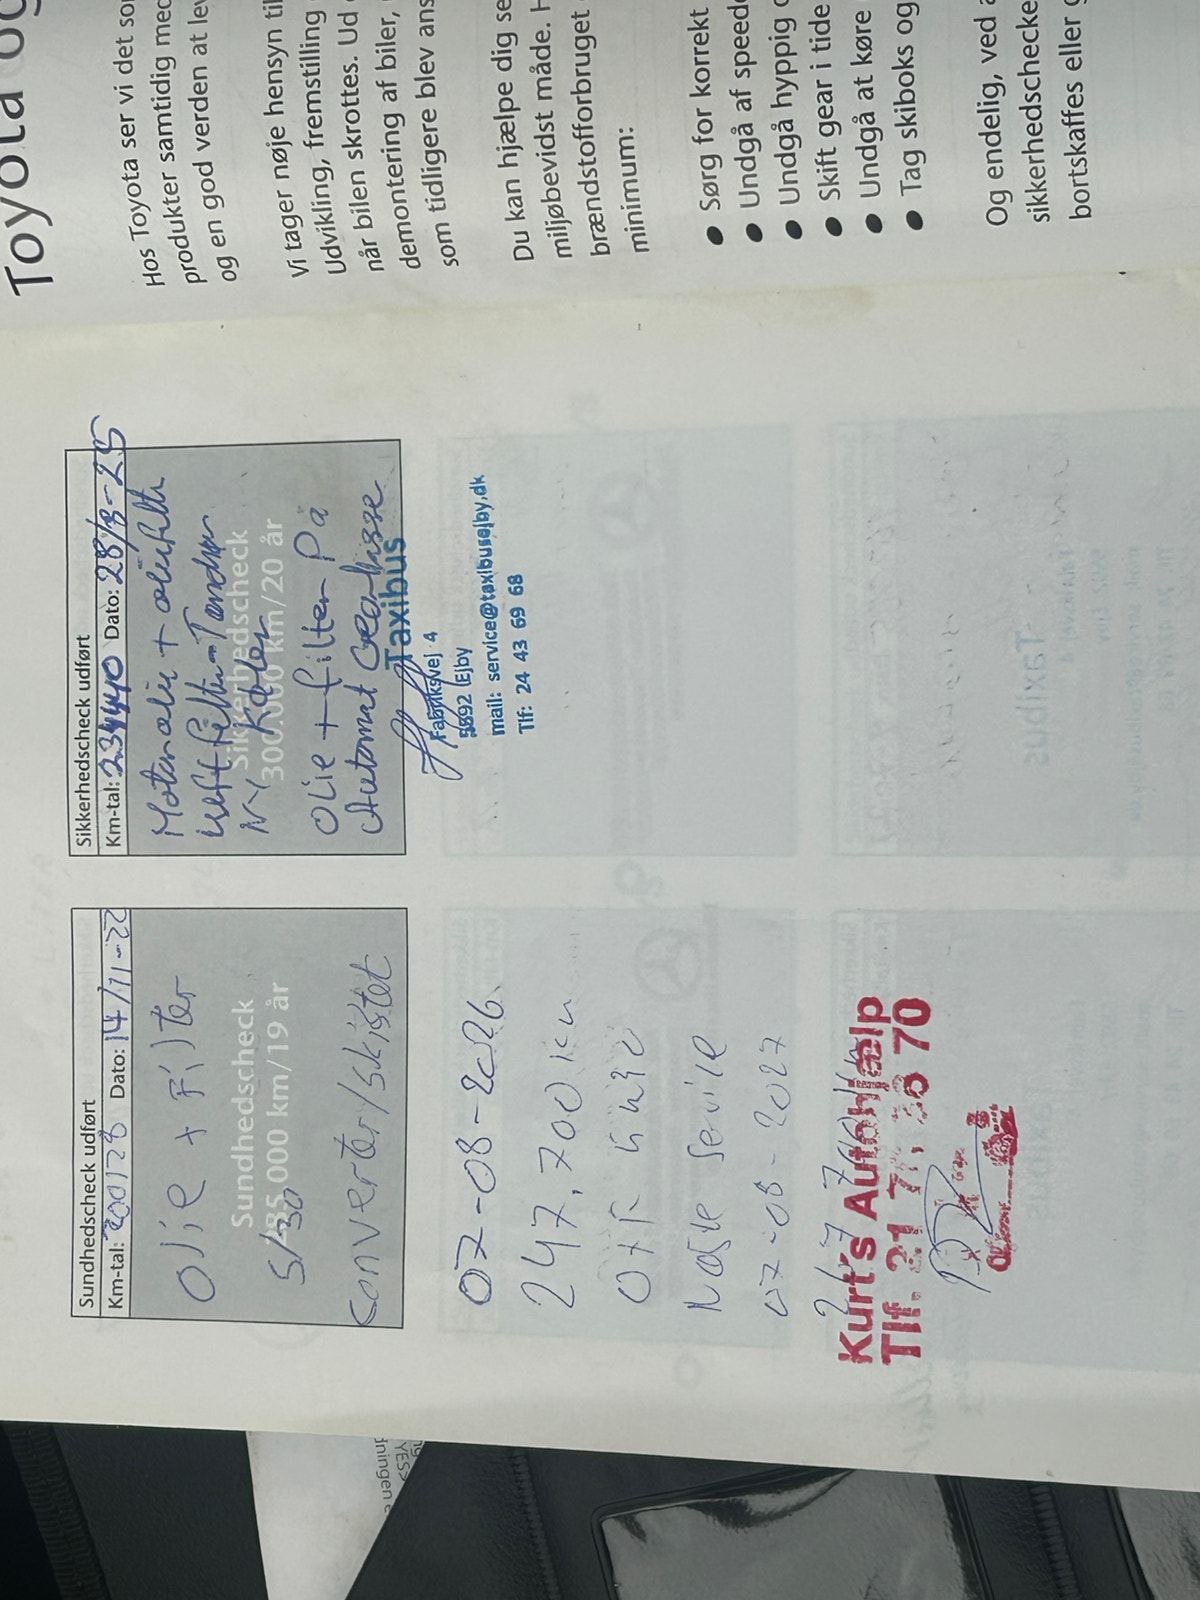 Sundhedscheck udført
Km-tal: 200128 Dato: 14/11-22
Olie + Filter
Sundhedscheck
285.000 km/19 år
5/30
Converter/skiftet
07-08-2026.
247.700 km
Næste service
07-08-2027
Kurt's Autohjælp
Tlf. 21 7
70
Sikkerhedscheck udført
Km-tal: 234440 Dato: 28/8-25
Motorolie + oliefilter
Luftfilter - Tændrør
Sikkerhedscheck
NY Køler
300.000 km/20 år
Olie + filter På
Automat Gearkasse
Taxibus
Fabriksvej 4
5592 Ejby
mail: service@taxibusejby.dk
Tlf: 24 43 69 68
Toyota og
Hos Toyota ser vi det som
produkter samtidig med
og en god verden at lev
Vi tager nøje hensyn til
Udvikling, fremstilling
når bilen skrottes. Ud
demontering af biler,
som tidligere blev ans
Du kan hjælpe dig se
miljøbevidst måde. H
brændstofforbruget
minimum:
● Sørg for korrekt
● Undgå af speede
● Undgå hyppig
● Skift gear i tide
● Undgå at køre
● Tag skiboks og
Og endelig, ved
sikkerhedschecke
bortskaffes eller